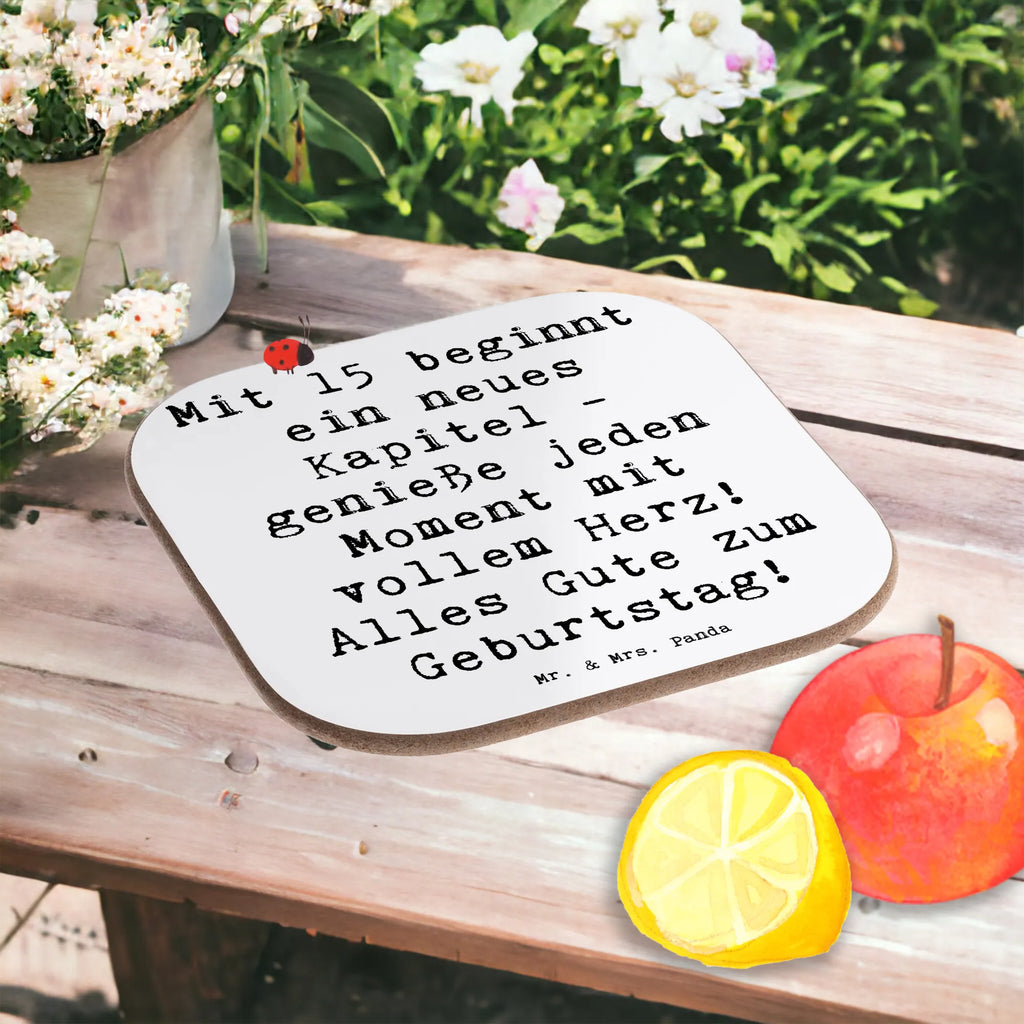 Mit 15 beginnt
ein neues
Kapitel -
genieße jeden
Moment mit
vollem Herz!
Alles Gute zum
Geburtstag!
Mr. & Mrs. Panda